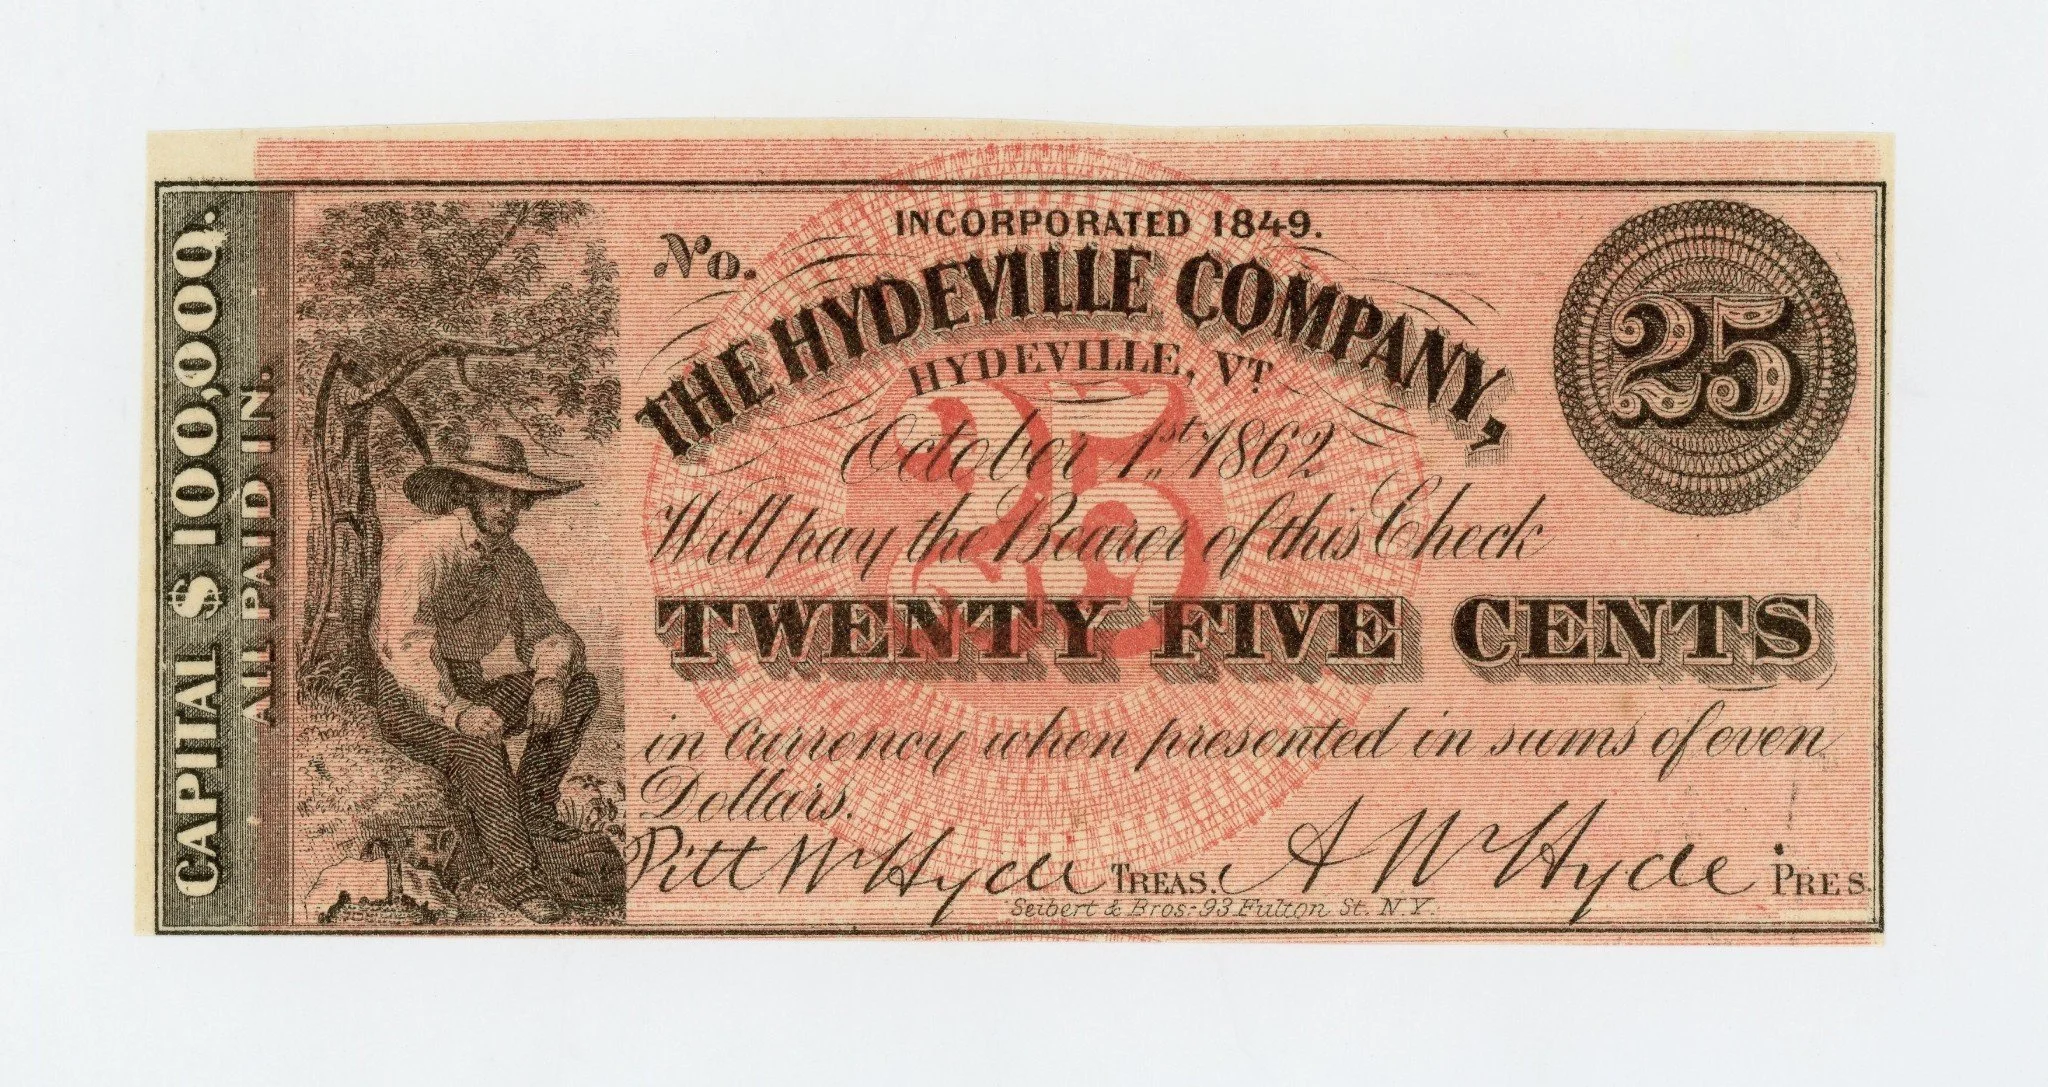 CAPITAL $ 100,000.
ALL PAID IN.
No.
INCORPORATED 1849.
THE HYDEVILLE COMPANY,
HYDEVILLE, VT.
25
25
October 1st, 1862
Will pay the Bearer of this Check
TWENTY FIVE CENTS
in currency when presented in sums of even
Dollars.
Pitt W Hyde TREAS. A W Hyde PRES.
Seibert & Bros. 93 Fulton St. N.Y.